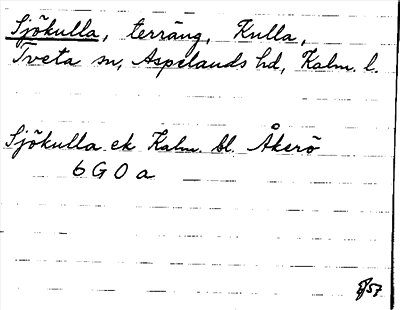 Sjökulla, terräng, Kulla,
Tveta sn, Aspelands hd, Kalm. l.
Sjökulla ek Kalm. bl. Åkerö
6 G 0 a
57